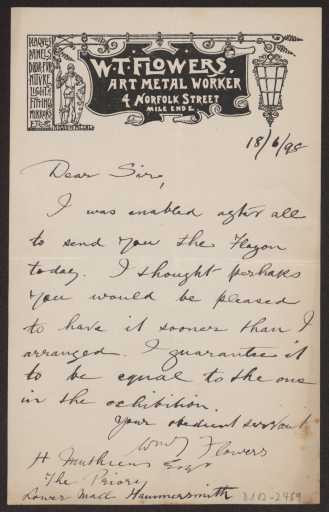 PLAQUES
PANELS
DOOR FUR
NITURE
LIGHT
FITTING
MIRRORS
ETC
W.T. FLOWERS.
ART METAL WORKER
4 NORFOLK STREET
MILE END E.
18/6/98
Dear Sir,
I was enabled after all
to send you the Flagon
today. I thought perhaps
you would be pleased
to have it sooner than I
arranged. I guarantee it
to be equal to the one
in the exhibition.
Your obedient servant
Flowers
H Muthesius Esqr
The Priory
Lower Mall Hammersmith